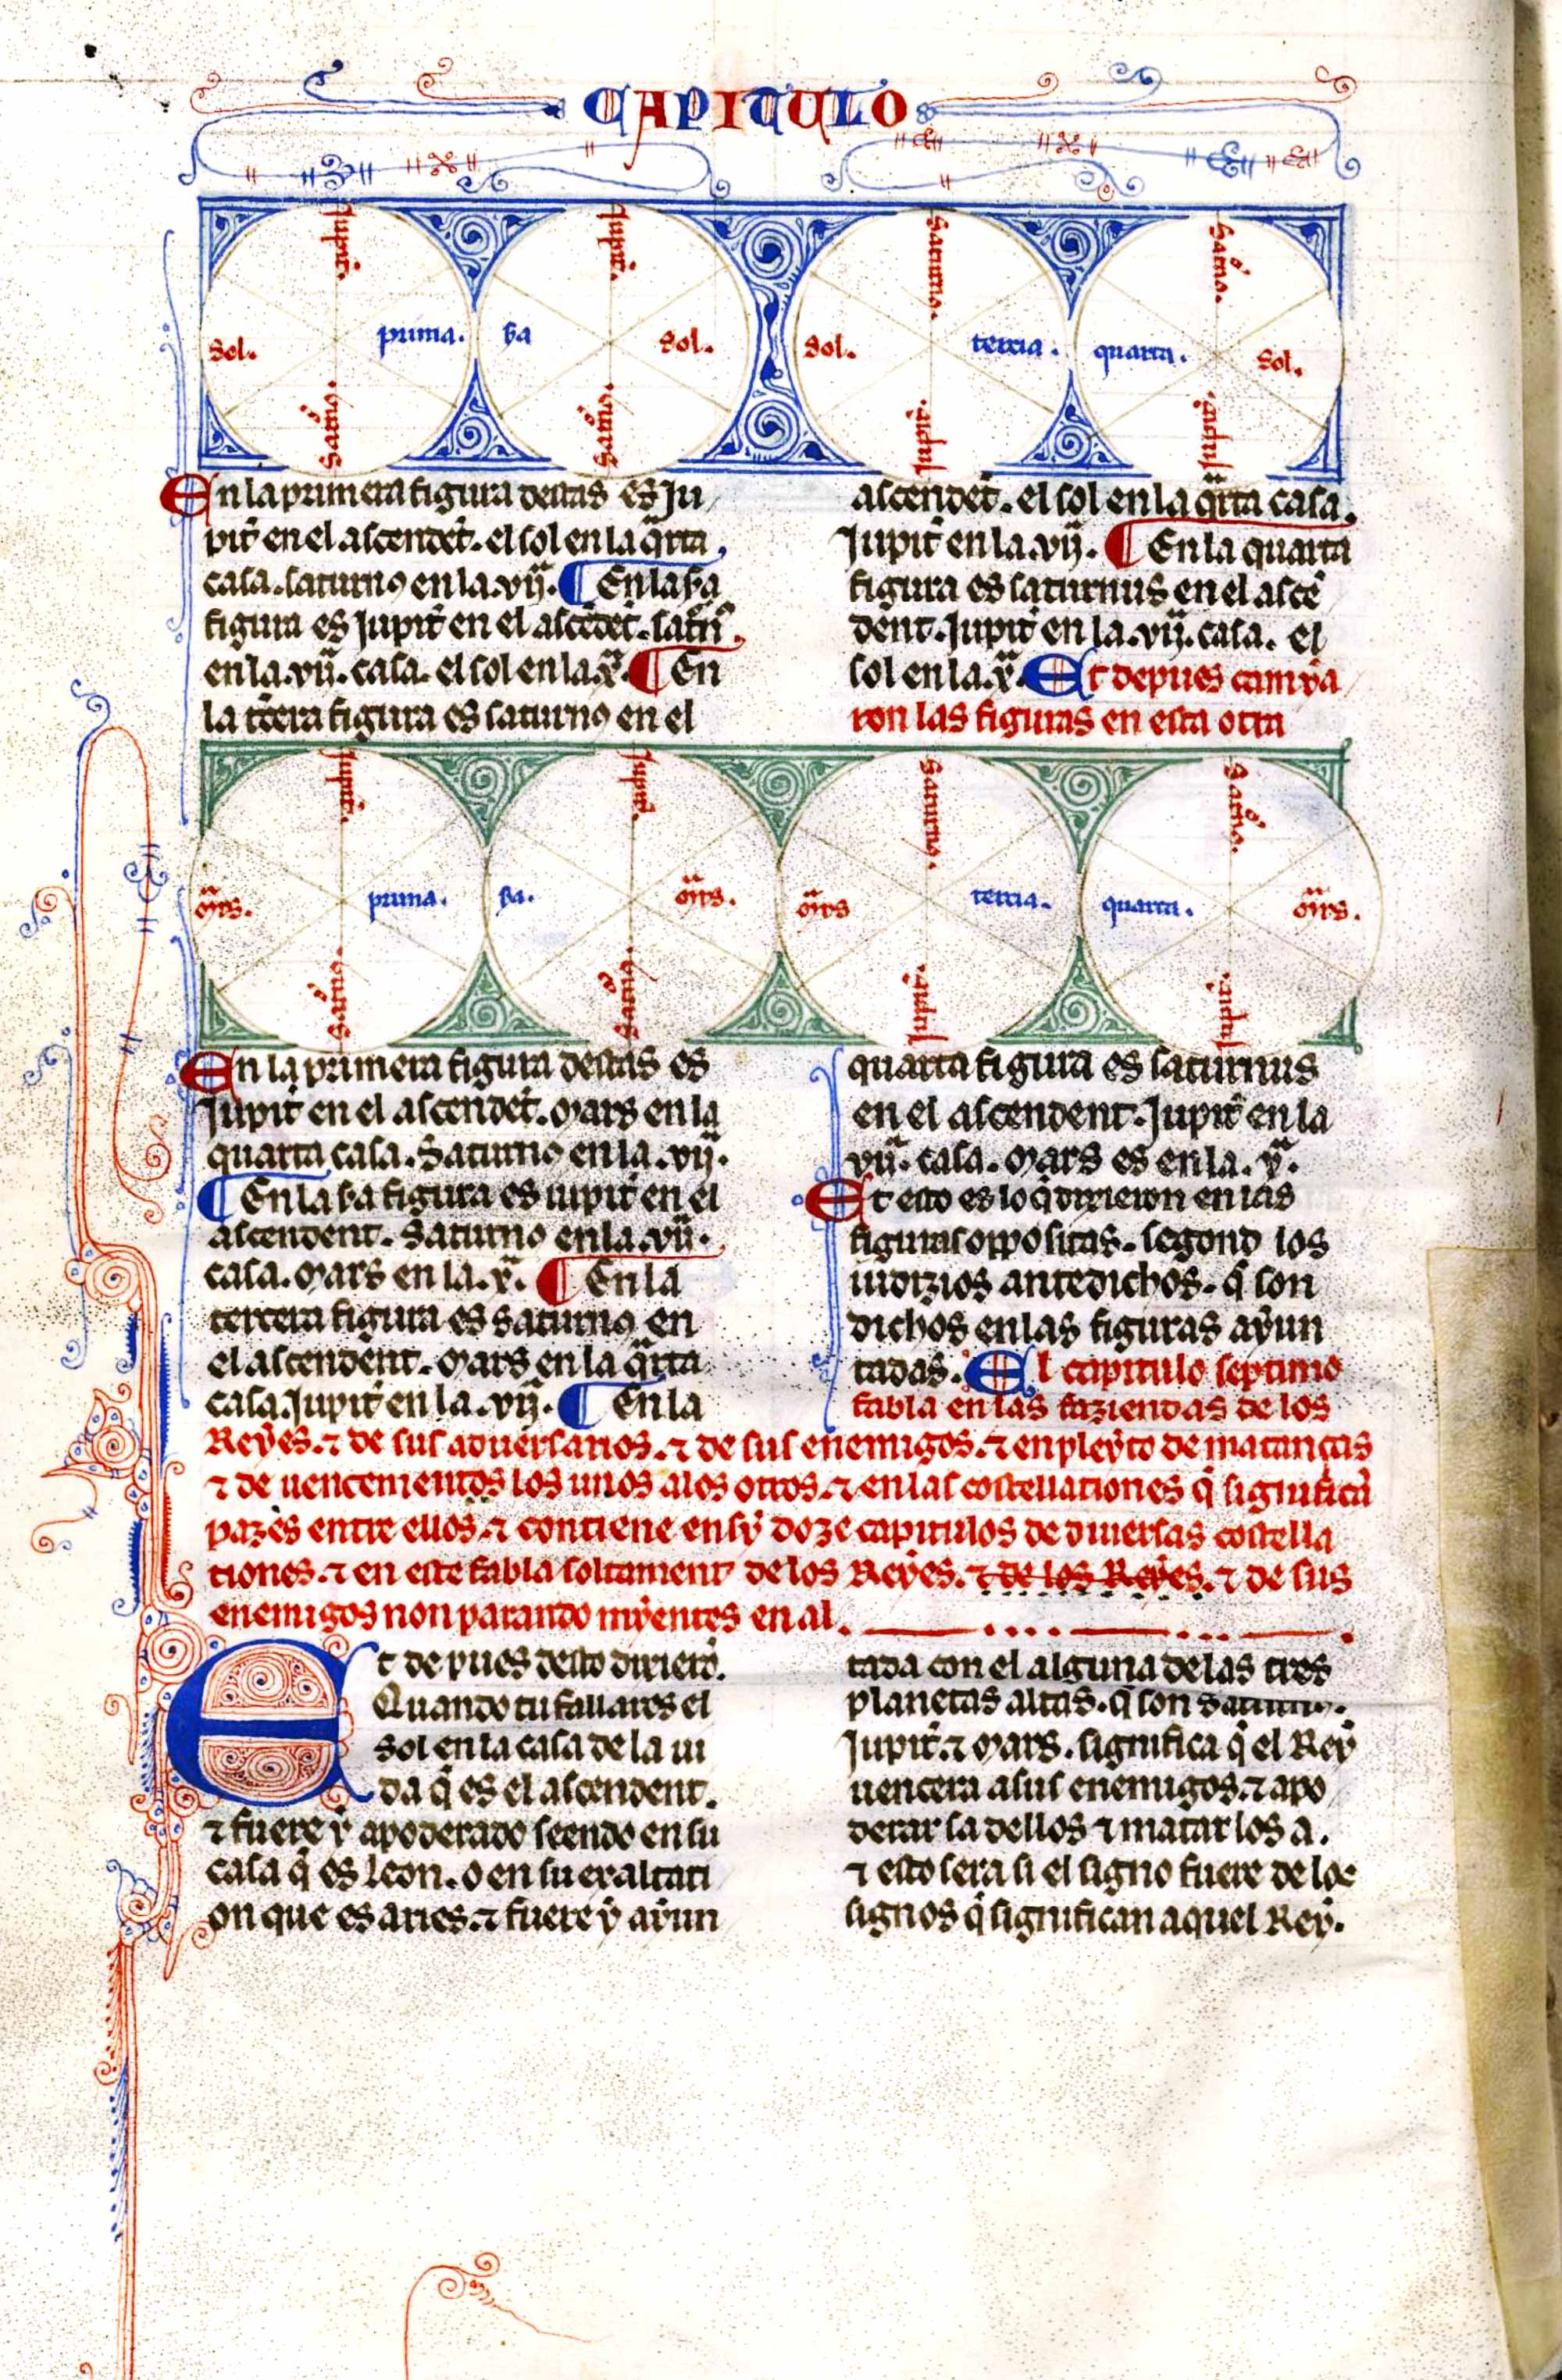 CAPITULO
Jupit̉.
Jupit̉.
Saturno.
Sat̉no.
sol.
prima.
sol.
sol.
tercia.
quarta.
sol.
Sat̉no.
Sat̉no.
Jupit̉.
Jupit̉.
En la primera figura destas es Ju
pit̉ en el ascendẽt. el sol en la q̈rta
casa. saturno en la .vij.ª ¶ En la s̃a
figura es Jupit̉ en el ascẽdẽt. sat̉nº
en la .vij.ª casa. el sol en la .x.ª ¶ En
la t̉cera figura es saturno en el
ascendẽt. el sol en la q̈rta casa.
Jupit̉ en la .vij. ¶ En la quarta
figura es saturnus en el ascẽ
dent. Jupit̉ en la .vij.ª casa. el
sol en la .x.ª Et depues camya
ron las figuras en esta otra
Jupit̉.
Jupit̉.
Saturno.
Sat̉no.
mͣrs.
prima.
s̃a.
mͣrs.
mͣrs
tercia.
quarta.
mͣrs.
Sat̉no.
Sat̉no.
Jupit̉.
Jupit̉.
En la primera figura destas es
Jupit̉ en el ascendẽt. Mars en la
quarta casa. Saturno en la .vij.ª
¶ En la s̃a figura es iupit̉ en el
ascendent. Saturno en la .vij.ª
casa. Mars en la .x.ª ¶ En la
tercera figura es saturno en
el ascendent. Mars en la q̈rta
casa. Jupit̉ en la .vij.ª ¶ En la
quarta figura es saturnus
en el ascendent. Jupit̉ en la
vij.ª casa. Mars es en la .x.ª
Et esto es lo q̃ dixieron en las
figuras oppositas. segond los
iudizios antedichos. q̃ son
dichos en las figuras ayun
tadas. El capitulo septimo
fabla en las faziendas de los
Reyes. ⁊ de sus aduersarios. ⁊ de sus enemigos. ⁊ en pleyto de matanças
⁊ de uencemientos los unos alos otros. ⁊ en las costellationes q̃ significã
pazes entre ellos. ⁊ contiene en sy doze capitulos de diuersas costella
tiones. ⁊ en este fabla soltament de los Reyes. ⁊ de los Reyes. ⁊ de sus
enemigos non parando myentes en al.
Et depues desto dixierõ.
Quando tu fallares el
Sol en la casa de la ui
da q̃ es el ascendent.
⁊ fuere y apoderado seendo en su
casa q̃ es leon. o en su exaltati
on que es aries. ⁊ fuere y ayun
tada con el alguna de las tres
planetas altas. q̃ son Saturnº.
Jupit̉. ⁊ Mars. significa q̃ el Rey
uencera a sus enemigos. ⁊ apo
derar sa dellos ⁊ matar los a.
⁊ esto sera si el signo fuere de los
signos q̃ significan aquel Rey.